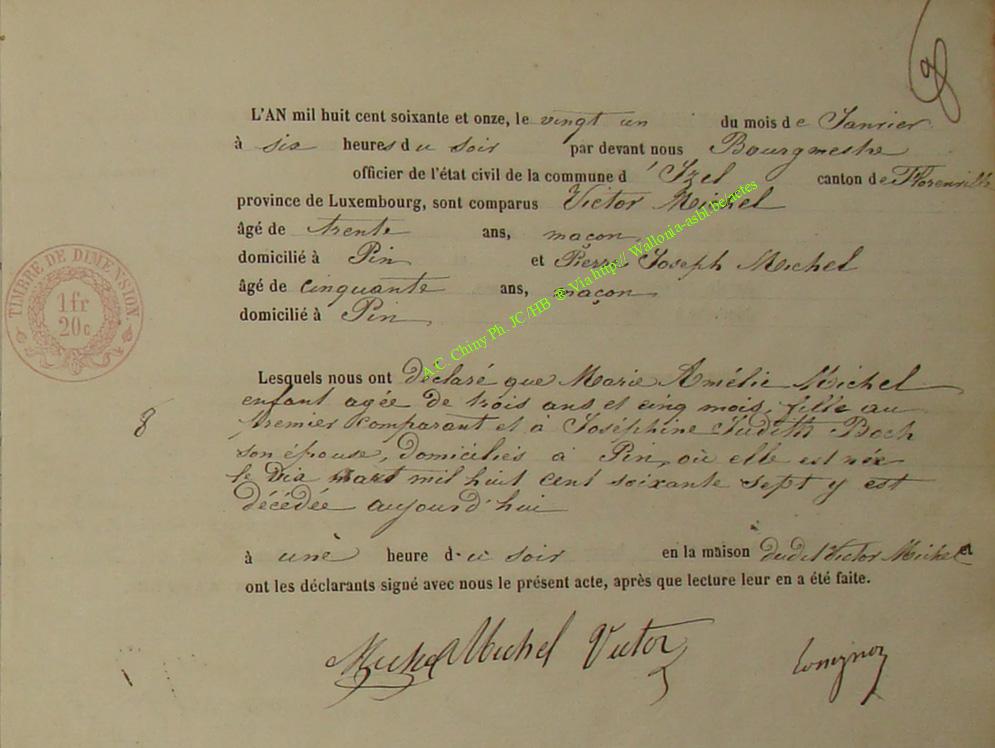 8
L'AN mil huit cent soixante et onze, le vingt un du mois de Janvier
à six heures du soir par devant nous Bourgmestre
officier de l'état civil de la commune d'Izel canton de Florenville
province de Luxembourg, sont comparus Victor Michel
âgé de trente ans, maçon
domicilié à Pin et Pierre Joseph Michel
âgé de cinquante ans, maçon,
domicilié à Pin,
TIMBRE DE DIMENSION
1 fr
20 c
A.C. Chiny Ph. JC/HB ® Via http:// Wallonia-asbl.be/actes
Lesquels nous ont déclaré que Marie Amélie Michel
enfant agée de trois ans et cinq mois, fille au
premier comparant et à Joséphine Judith Boch
8
son épouse, domiciliés à Pin, où elle est née
le dix mars mil huit cent soixante sept y est
décédée aujourd'hui
à une heure du soir en la maison dudit Victor Michel et
ont les déclarants signé avec nous le présent acte, après que lecture leur en a été faite.
Michel Michel Victor